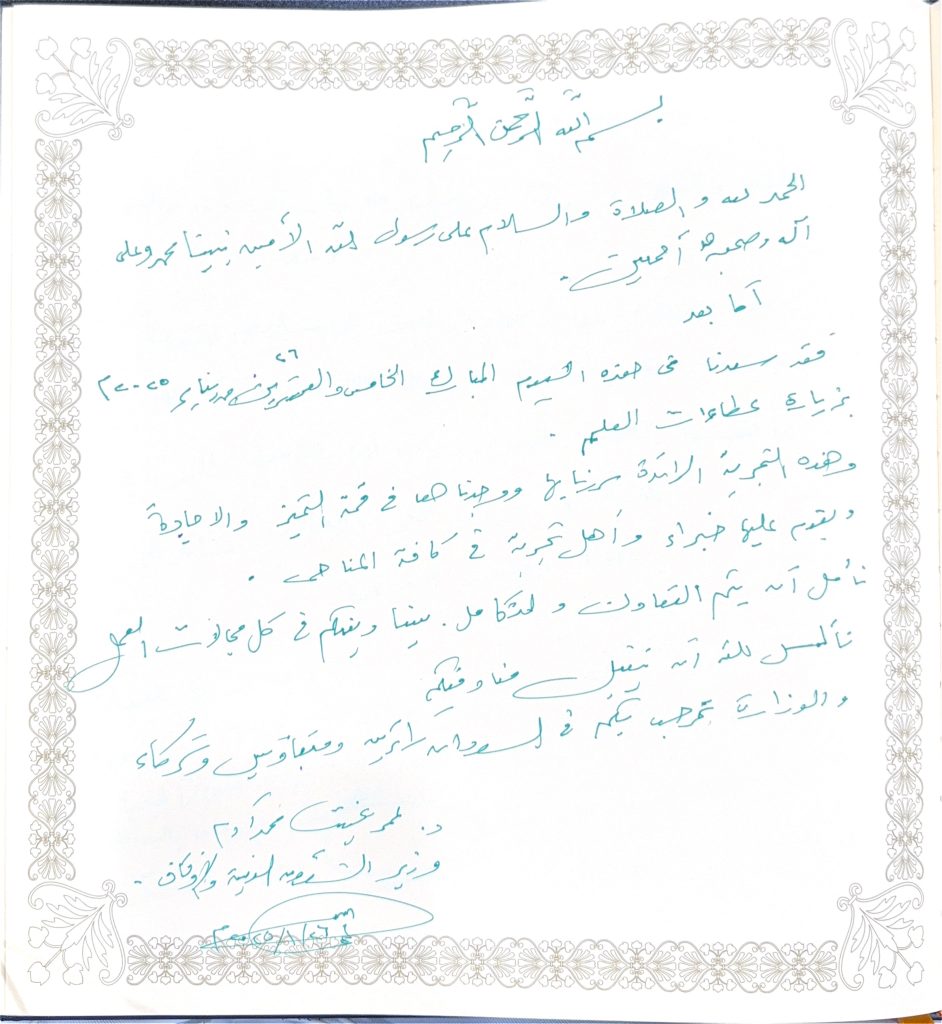 بسم الله الرحمن الرحيم
الحمد لله و الصلاة والسلام على رسول الله الأمين نبينا محمد وعلى
آله وصحبه أجمعين .
أما بعد
فقد سعدنا فى هذه اليوم المبارك الخامس والعشرين ٢٦ من يناير ٢٠٢٥م
بزيارة عطاءات العلم .
وهذه التجربة الرائدة سررنا بها ووجدناها فى قمة التميز والاجادة
ويقوم عليها خبراء وأهل تجربة فى كافة المناحى .
نأمل أن يتم التعاون والتكامل بيننا وبينكم فى كل مجالات العمل
نسأل الله أن يتقبل منا ومنكم
والوزارة ترحب بكم فى السودان زائرين ومتعاونين وشركاء
د. عمر بخيت محمد آدم
وزير الشئون الدينية والأوقاف .
٢٠٢٥/١/٢٦م